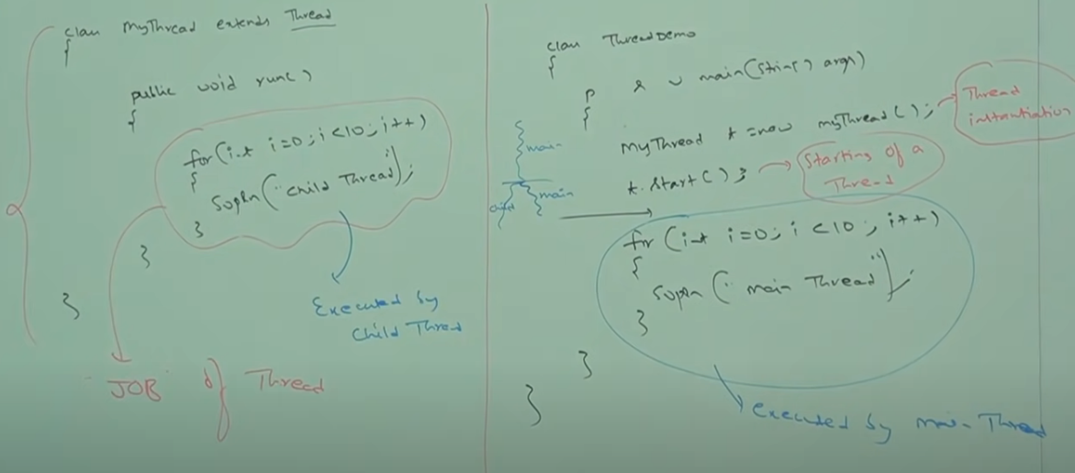 class MyThread extends Thread
{
public void run()
{
for(int i=0; i<10; i++)
{
Sopln("child Thread");
}
}
}
Executed by
Child Thread
"JOB" of Thread
class ThreadDemo
{
p s v main(String[] args)
{
MyThread t = new myThread();
Thread
instantiation
t.start();
Starting of a
Thread
main
main
child
for (int i=0; i<10; i++)
{
Sopln("main Thread");
}
}
}
executed by main Thread